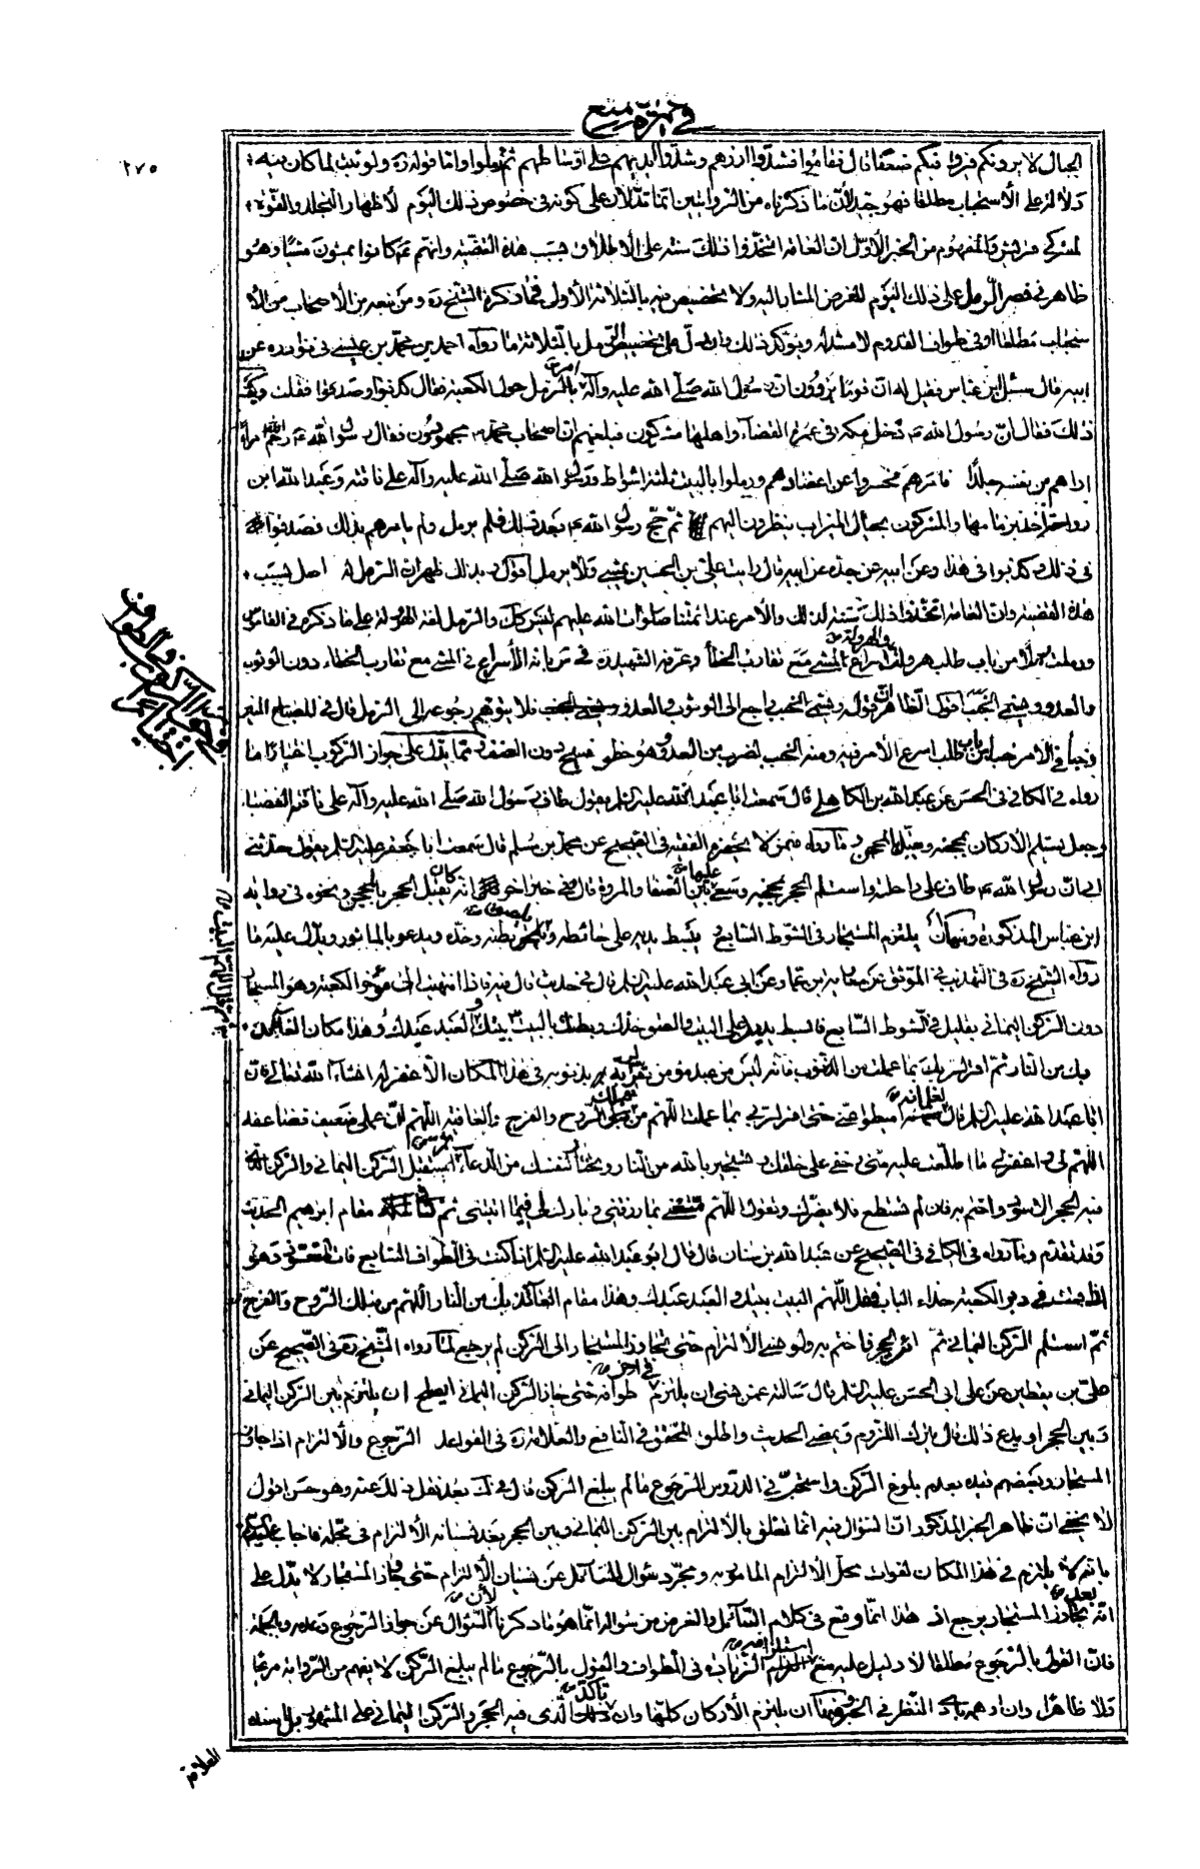 في حمزة منيع
٢٧٥
الجبال لا يرونكم فيروا فيكم ضعفا قال فقاموا فشدوا ازرهم وشدوا ايديهم على اوساطهم ثم رملوا واما قوله ره ولو ثبت لما كان فيه
دلالة على الاستحباب مطلقا فهو جيد لان ما ذكرناه من الروايتين انما تدلان على كونه في خصوص ذلك اليوم لاظهار التجلد والقوة
لمشركي قريش والمفهوم من الخبر الاول ان العامة اتخذوا ذلك سنة على الاطلاق بسبب هذه القضية وانهم ع كانوا يمشون مشيا وهو
ظاهر في قصر الرمل على ذلك اليوم للغرض المشار اليه ولا تخصيص فيه بالثلاثة الاولى فما ذكره الشيخ ره ومن تبعه من الاصحاب من الا
ستحباب مطلقا او في طواف القدوم لا مستند له ويؤكد ذلك وان دل على تخصيص الرمل بالثلاثة ما رواه احمد بن محمد بن عيسى في نوادره عن
ابيه قال سئل ابن عباس فقيل له ان قوما يروون ان رسول الله صلى الله عليه وآله امر بالرمل حول الكعبة فقال كذبوا وصدقوا فقلت وكيف
ذلك فقال ان رسول الله ص دخل مكة في عمرة القضاء واهلها مشركون فبلغهم ان اصحاب محمد ص مجهودون فقال رسول الله ص رحم الله امرأ
اراهم من نفسه جلدا فامرهم فحسروا عن اعضادهم ورملوا بالبيت ثلثة اشواط ورسول الله صلى الله عليه وآله على ناقته وعبد الله ابن
رواحة اخذ بزمامها والمشركون بحيال الميزاب ينظرون اليهم ثم حج رسول الله ص بعد ذلك فلم يرمل ولم يامرهم بذلك فصدقوا
في ذلك وكذبوا في هذا وعن ابيه عن جده عن ابيه قال رايت علي بن الحسين يمشي ولا يرمل اقول وبذلك ظهر ان الرمل لا اصل لسبب
هذه القضية وان العامة اتخذوا ذلك سنة لذلك والامر عند ائمتنا صلوات الله عليهم ليس كك والرمل لغة الهرولة على ما ذكره في القاموس
ورملت رملا من باب طلب هرولت والهرولة اسراع المشي مع تقارب الخطأ وعرفه الشهيد ره في س بانه الاسراع في المشي مع تقارب الخطاء دون الوثوب
والعدو ويسمى الخبب اقول الظاهر ان قوله ويسمى الخبب راجع الى الوثوب والعدو فلا يتوهم رجوعه الى الرمل قال في المصباح المنير
وخب في الامر خببا من باب طلب اسرع الاخذ فيه ومنه الخبب لضرب من العدو وهو خطو فسيح دون العنق ومما يدل على جواز الركوب اختيارا ما
رواه في الكافي في الحسن عن عبد الله بن الكاهلي قال سمعت ابا عبد الله عليه السلم يقول طاف رسول الله صلى الله عليه وآله على ناقته القضباء
وجعل يستلم الاركان بمحجنه ويقبل المحجن وما رواه فيمن لا يحضره الفقيه في الصحيح عن محمد بن مسلم قال سمعت ابا جعفر عليه السلم يقول حدثني
ابي ان رسول الله ص طاف على راحلته واستلم الحجر بمحجنه وسعى عليها بين الصفا والمروة قال وفي خبر اخر انه كان يقبل الحجر بالمحجن ونحوه في رواية
ابن عباس المذكورة ومنها ان يلتزم المستجار في الشوط السابع يبسط يديه على حائطه ويلصق بطنه وخده ويدعو بالماثور ويدل عليه ما
رواه الشيخ ره في التهذيب في الموثق عن معاوية بن عمار عن ابي عبد الله عليه السلم قال في حديث قال فيه فاذا انتهيت الى مؤخر الكعبة وهو المستجار
دون الركن اليماني بقليل في الشوط السابع فابسط يديك على البيت والصق خدك وبطنك بالبيت ثم قل اللهم البيت بيتك والعبد عبدك وهذا مكان العائذ
بك من النار ثم اقر لربك بما عملت من الذنوب فانه ليس من عبد مؤمن يقر لربه بذنوبه في هذا المكان الا غفر له انشاء الله تعالى فان
ابا عبد الله عليه السلم قال لغلمانه اميطوا عني حتى اقر لربي بما عملت اللهم من قبلك الروح والفرج والعافية اللهم ان عملي ضعيف فضاعفه
اللهم لي واغفر لي ما اطلعت عليه مني وخفي على خلقك وتستجير بالله من النار وتختار لنفسك من الدعاء ثم استقبل الركن اليماني والركن الذي
فيه الحجر الاسود واختم به فان لم تستطع فلا يضرك وتقول اللهم متعني بما رزقتني وبارك لي فيما اتيتني ثم تاتي مقام ابرهيم الحديث
وقد تقدم وما رواه في الكافي في الصحيح عن عبد الله بن سنان قال قال ابو عبد الله عليه السلم اذا كنت في الطواف السابع فائت المتعوذ وهو
اذا قمت في دبر الكعبة حذاء الباب فقل اللهم البيت بيتك والعبد عبدك وهذا مقام العائذ بك من النار اللهم من قبلك الروح والفرج
ثم استلم الركن اليماني ثم ائت الحجر فاختم به ولو نسي الالتزام حتى تجاوز المستجار الى الركن لم يرجع لما رواه الشيخ ره في الصحيح عن
علي بن يقطين عن علي ابي الحسن عليه السلم قال سالته عمن نسي ان يلتزم في اخر طوافه حتى جاز الركن اليماني ايصلح ان يلتزم بين الركن اليماني
وبين الحجر او يدع ذلك قال يترك اللزوم ويمضي الحديث واطلق المحقق في النافع والعلامة ره في القواعد الرجوع والالتزام اذا جاوز
المستجار وبعضهم قيده بعدم بلوغ الركن واستحب في الدروس الرجوع ما لم يبلغ الركن قال في ك بعد نقل ذلك عنه وهو حسن اقول
لا يخفى ان ظاهر الخبر المذكور ان السؤال فيه انما تعلق بالالتزام بين الركن اليماني وبين الحجر بعد نسيانه الالتزام في محله فاجاب عليه السلم
بانه لا يلتزم في هذا المكان لفوات محل الالتزام المامور به ومجرد سؤال السائل عن نسيان الالتزام حتى جاز المستجار لا يدل على
انه بعد تجاوز المستجار يرجع اذ هذا انما وقع في كلام السائل والغرض من سؤاله انما هو ما ذكرنا لا السؤال عن جواز الرجوع وعدمه وبالجملة
فان القول بالرجوع مطلقا لا دليل عليه مع استلزامه الزيادة في الطواف والقول بالرجوع ما لم يبلغ الركن لا يفهم من الرواية صريحا
ولا ظاهرا وان اوهمه بادي النظر في الخبر ومنها ان يلتزم الاركان كلها وان تاكد الذي فيه الحجر والركن اليماني على المشهور بل اسنده
العلامة
في جواز الركوب في الطواف اختيارا